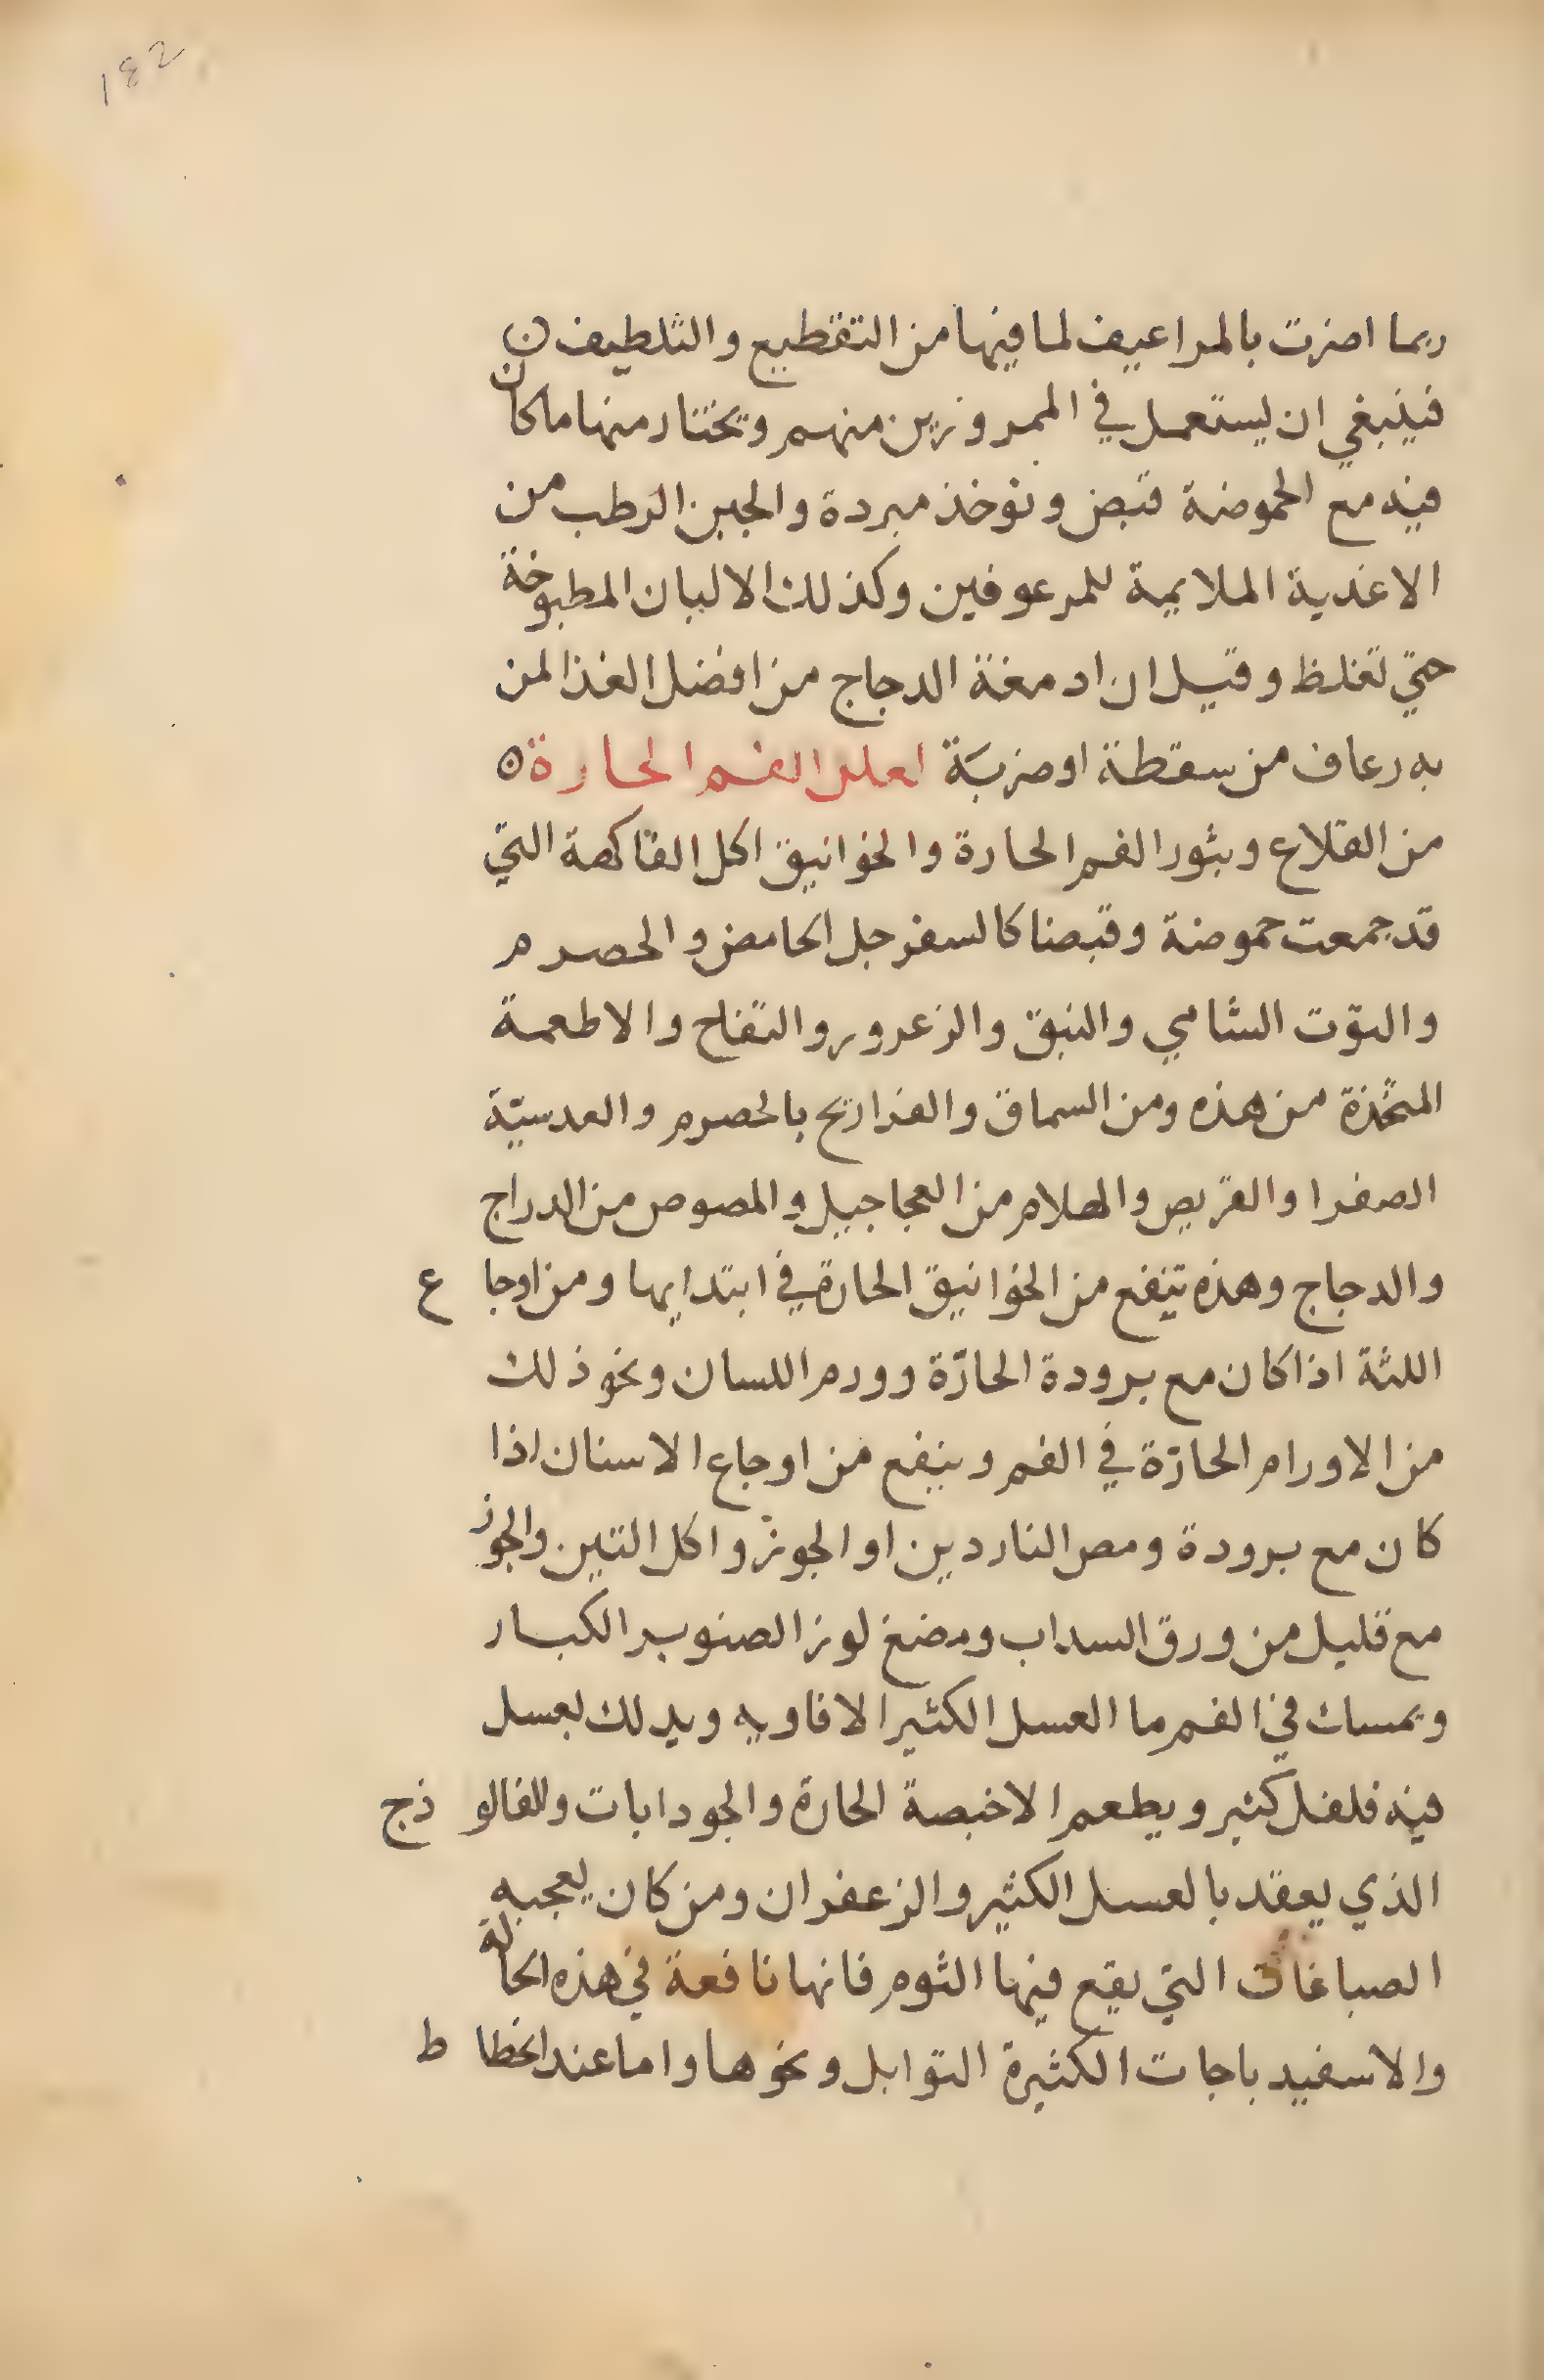 182
ربما اضرت بالمراعيف لما فيها من التقطيع والتلطيف ن
فينبغي ان يستعمل في الممروزين منهم ويختار منها ما كان
فيه مع الحموضة قبض وتوخذ مبردة والجبن الرطب من
الاغذية الملايمة للمرعوفين وكذلك الالبان المطبوخة
حتي تغلظ وقيل ان ادمغة الدجاج من افضل الغذا لمن
به رعاف من سقطة او ضربَة لعلل الفم الحارة ن
من القلاع وبثور الفم الحارة والخوانيق اكل الفاكهة التي
قد جمعت حموضة وقبضا كالسفرجل الحامض والحصرم
والتوت الشامي والنبق والزعرور والتفاح والاطعمة
المتخذة من هذه ومن السماق والفراريح بالحصرم والعدسيّة
الصفرا والقريص والهلام من العجاجيل والمصوص من الدراج
والدجاج وهذه تنفع من الخوانيق الحارة في ابتدايها ومن اوجاع
اللثة اذا كان مع برودة الحارّة وورم اللسان ونحو ذلك
من الاورام الحارّة في الفم وينفع من اوجاع الاسنان اذا
كان مع برودة ومص الناردين او الجوز واكل التين والجوز
مع قليل من ورق السداب ومضغ لوز الصنوبر الكبار
ويمسك في الفم ما العسل الكثير الافاويه ويدلك بعسل
فيه فلفل كثير ويطعم الاخبصة الحارة والجودابات وللفالوذج
الذي يعقد بالعسل الكثير والزعفران ومن كان يعجبه
الصباغات التي يقع فيها الثوم فانها نافعة في هذه الحالة
والاسفيدباجات الكثيرة التوابل ونحوها واما عند الخطاط